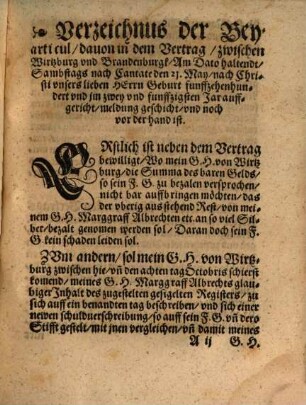 Verzeichnus der Bey-
arti cul / dauon in dem Vertrag / zwischen
Wirtzburg vnd Brandenburgk Am Dato haltendt
Sambstags nach Cantate den 21. May / nach Chri-
sti vnsers lieben HErrn Geburt funffzehenhun-
dert vnd jm zwey vnd funffzigsten Jar auff-
gericht / meldung geschicht / vnd noch
vor der hand ist.
ERstlich ist neben dem Vertrag
bewilligt / Wo mein G. H. von Wirtz
burg / die Summa des baren Gelds /
so sein F. G. zu bezalen versprochen /
nicht bar auffbringen möchten / das
der vberig aussstehend Rest / von mei-
nem G. H. Marggraff Albrechten etc an so viel Sil-
ber / bezalt genomen werden sol / Daran doch sein F.
G kein schaden leiden sol.
ZVm andern / sol mein G. H. von Wirtz
burg zwischen hie / vñ den achten tag Octobris schierst
komend / meines G. H. Marggraff Albrechts glau-
biger Inhalt des zugestelten gesigelten Registers / zu
sich auff ein benandten tag beschreiben / vnd sich einer
newen schuldverschreibung / so auff sein F. G. vñ dero
Stifft gestelt / mit jnen vergleichen / vñ damit meines
A ij G. H.